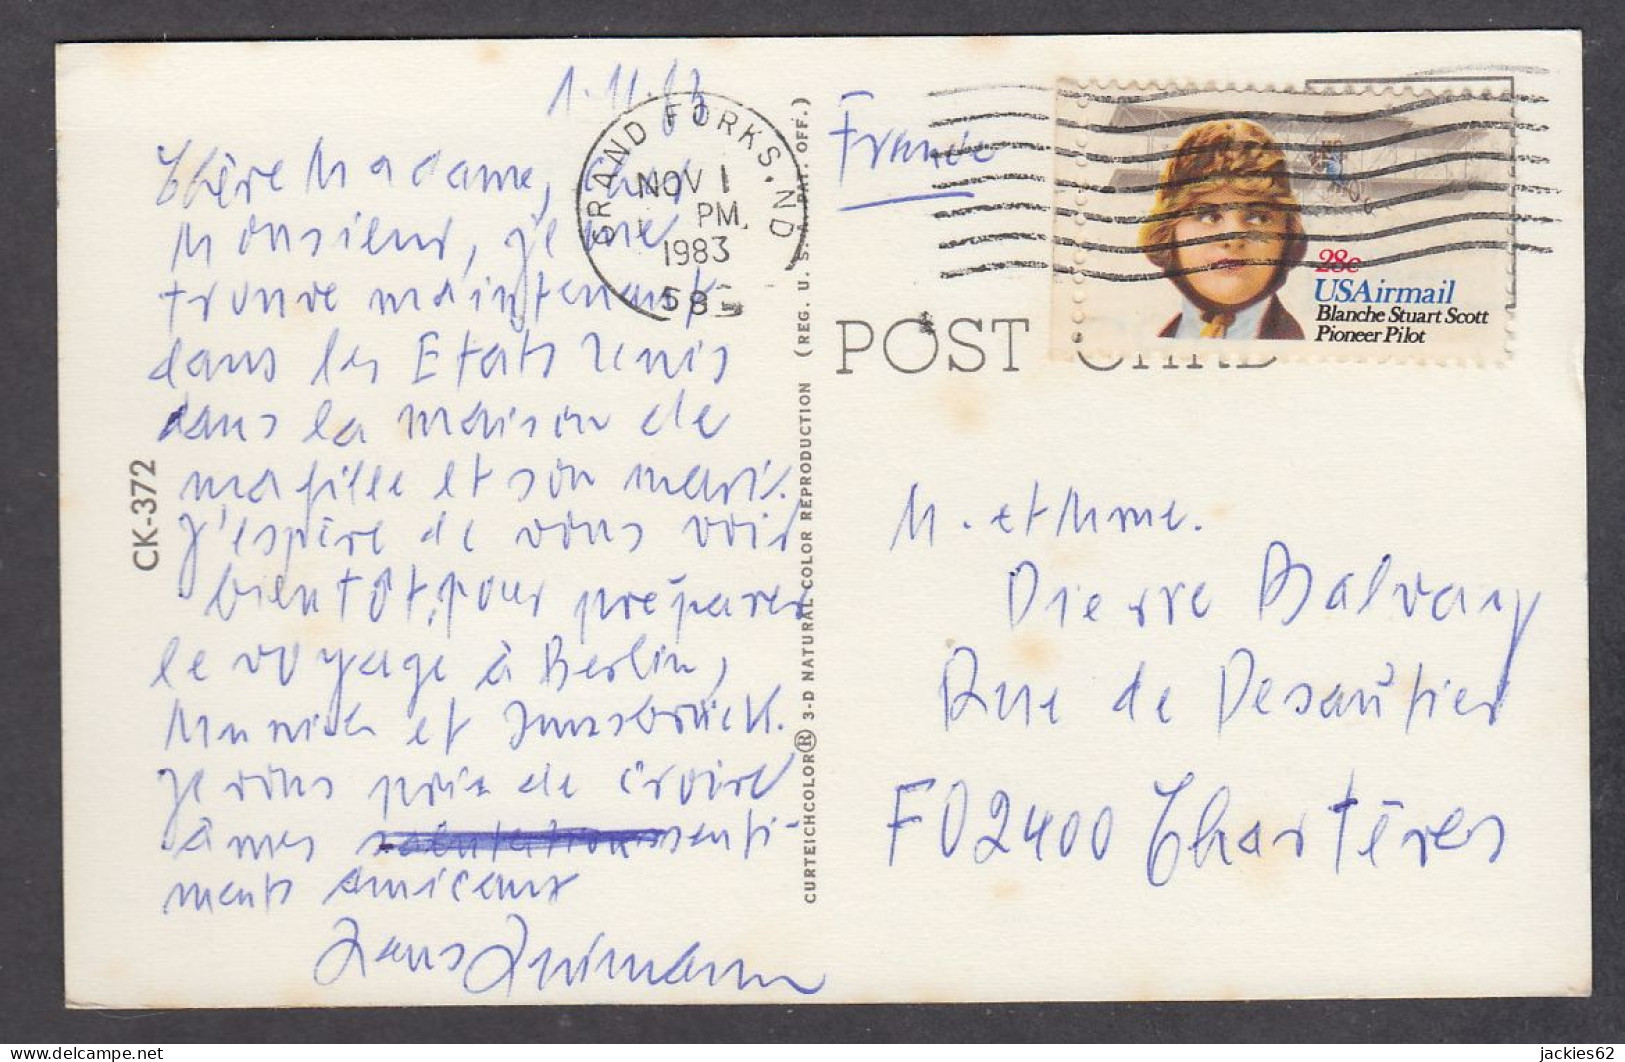 1.11.83
Chère Madame, cher
Monsieur, je me
trouve maintenant
dans les Etats Unis
dans la maison de
ma fille et son mari.
J'espère de vous voir
bientôt, pour préparer
le voyage à Berlin,
Munich et Innsbruck.
Je vous prie de croire
à mes salutations senti-
ments amicaux
Hans
CK-372
GRAND FORKS, ND
NOV 1
PM
1983
58
CURTEICHCOLOR® 3-D NATURAL COLOR REPRODUCTION (REG. U. S. A. PAT. OFF.)
France
28c
USAirmail
Blanche Stuart Scott
Pioneer Pilot
POST CARD
M. et Mme.
Pierre Balvay
Rue de
F 02400 Chartêves
jackies62